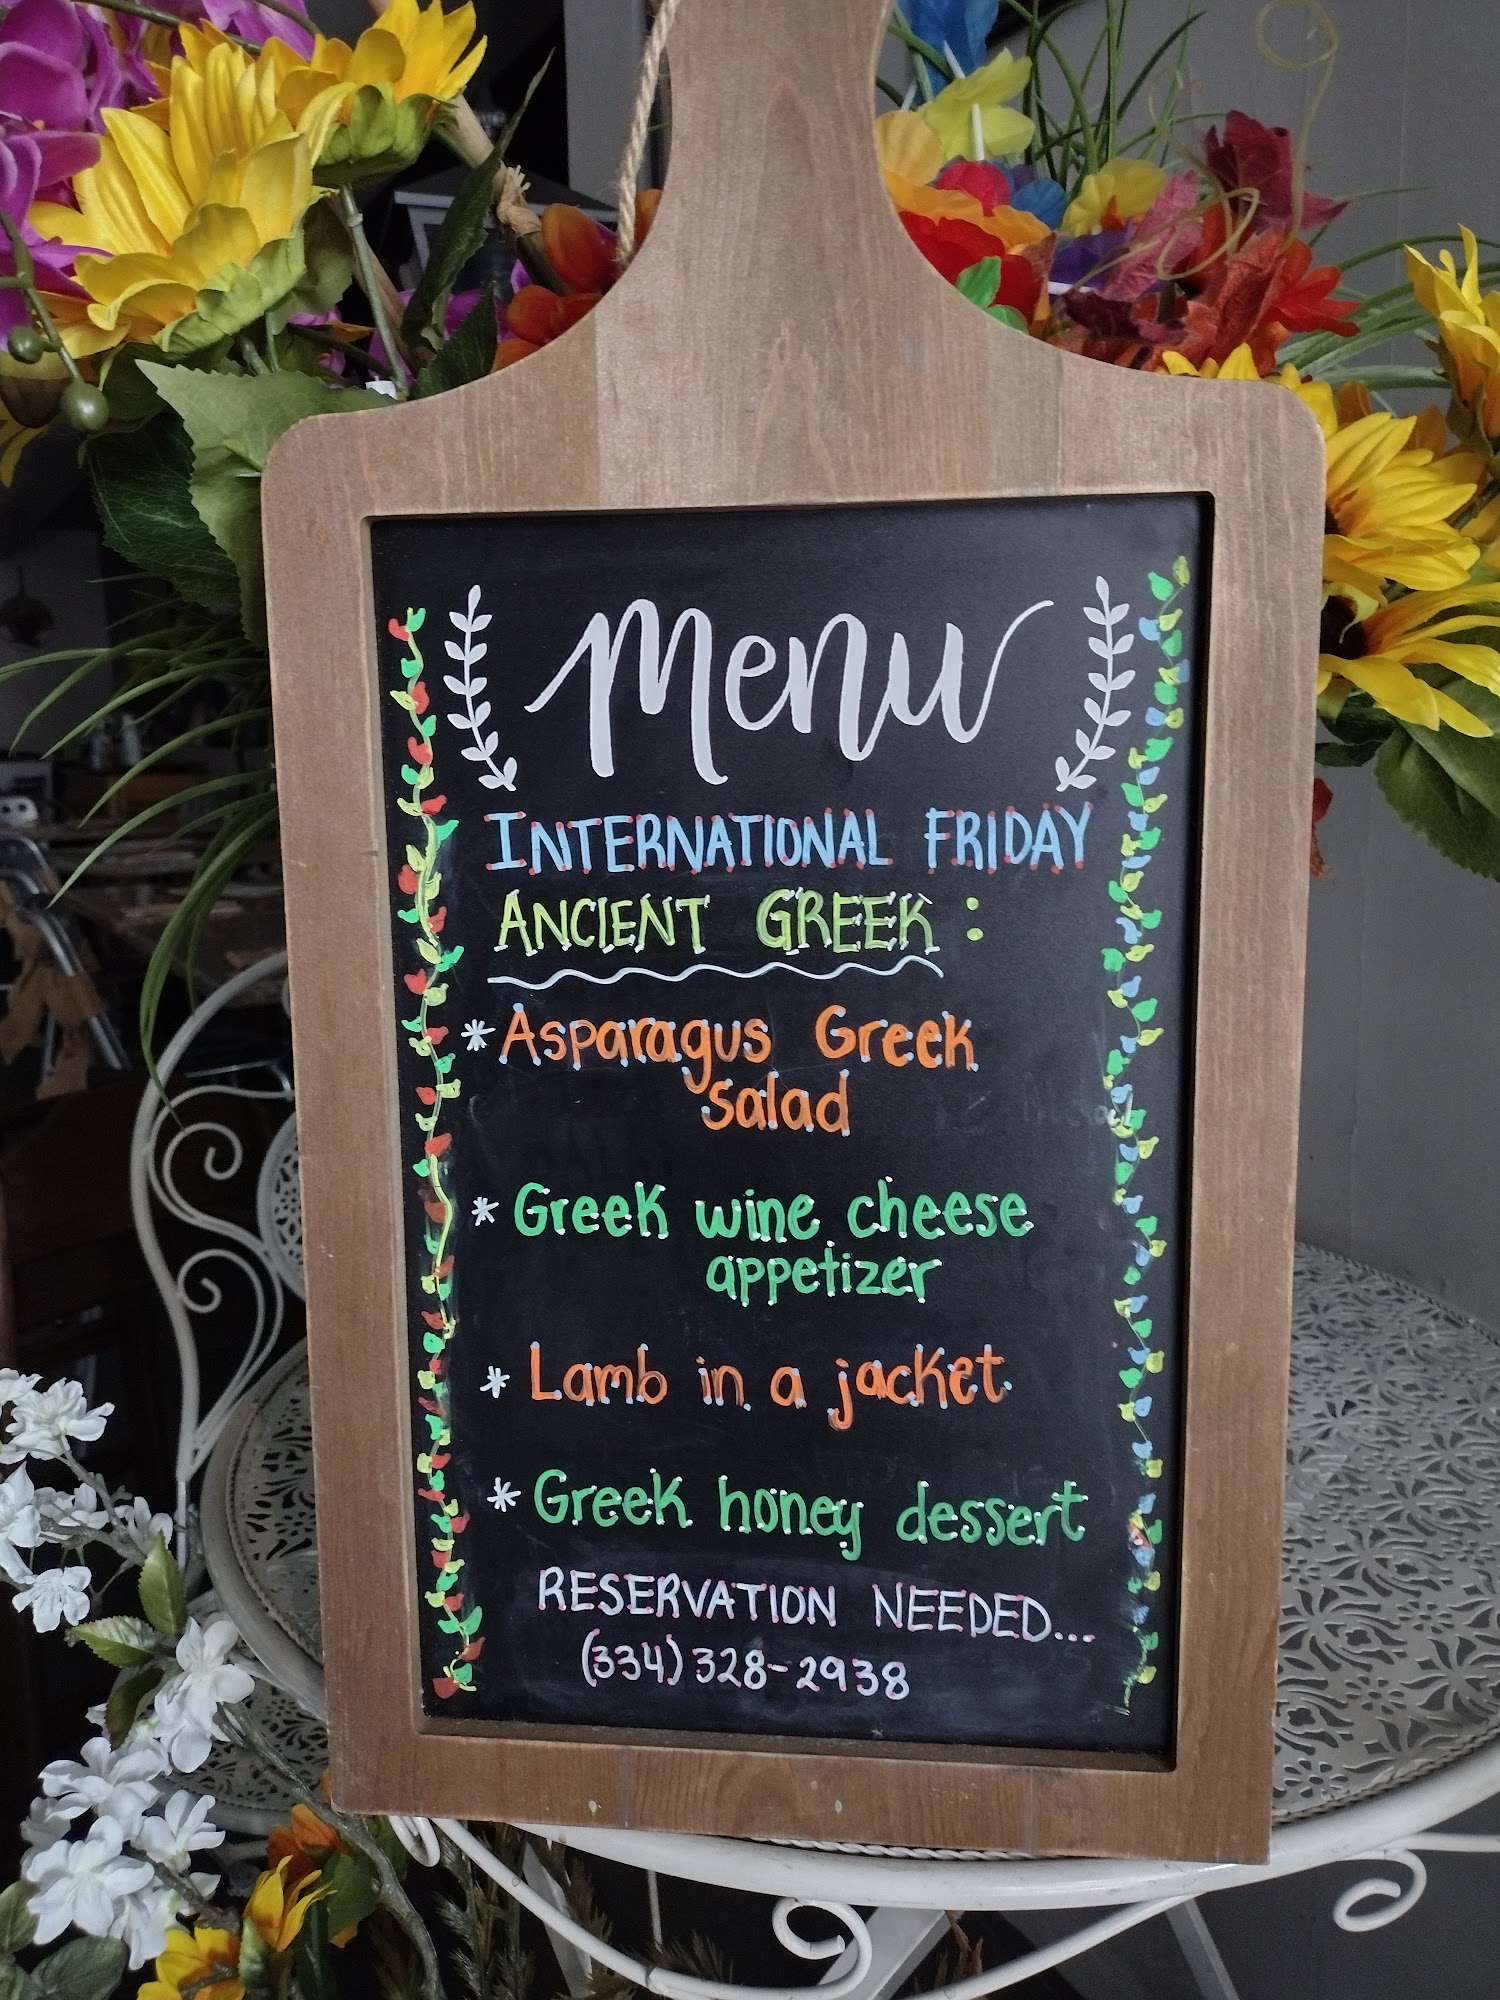 Menu
INTERNATIONAL FRIDAY
ANCIENT GREEK :
* Asparagus Greek
salad
* Greek wine cheese
appetizer
* Lamb in a jacket
* Greek honey dessert
RESERVATION NEEDED...
(334) 328-2938